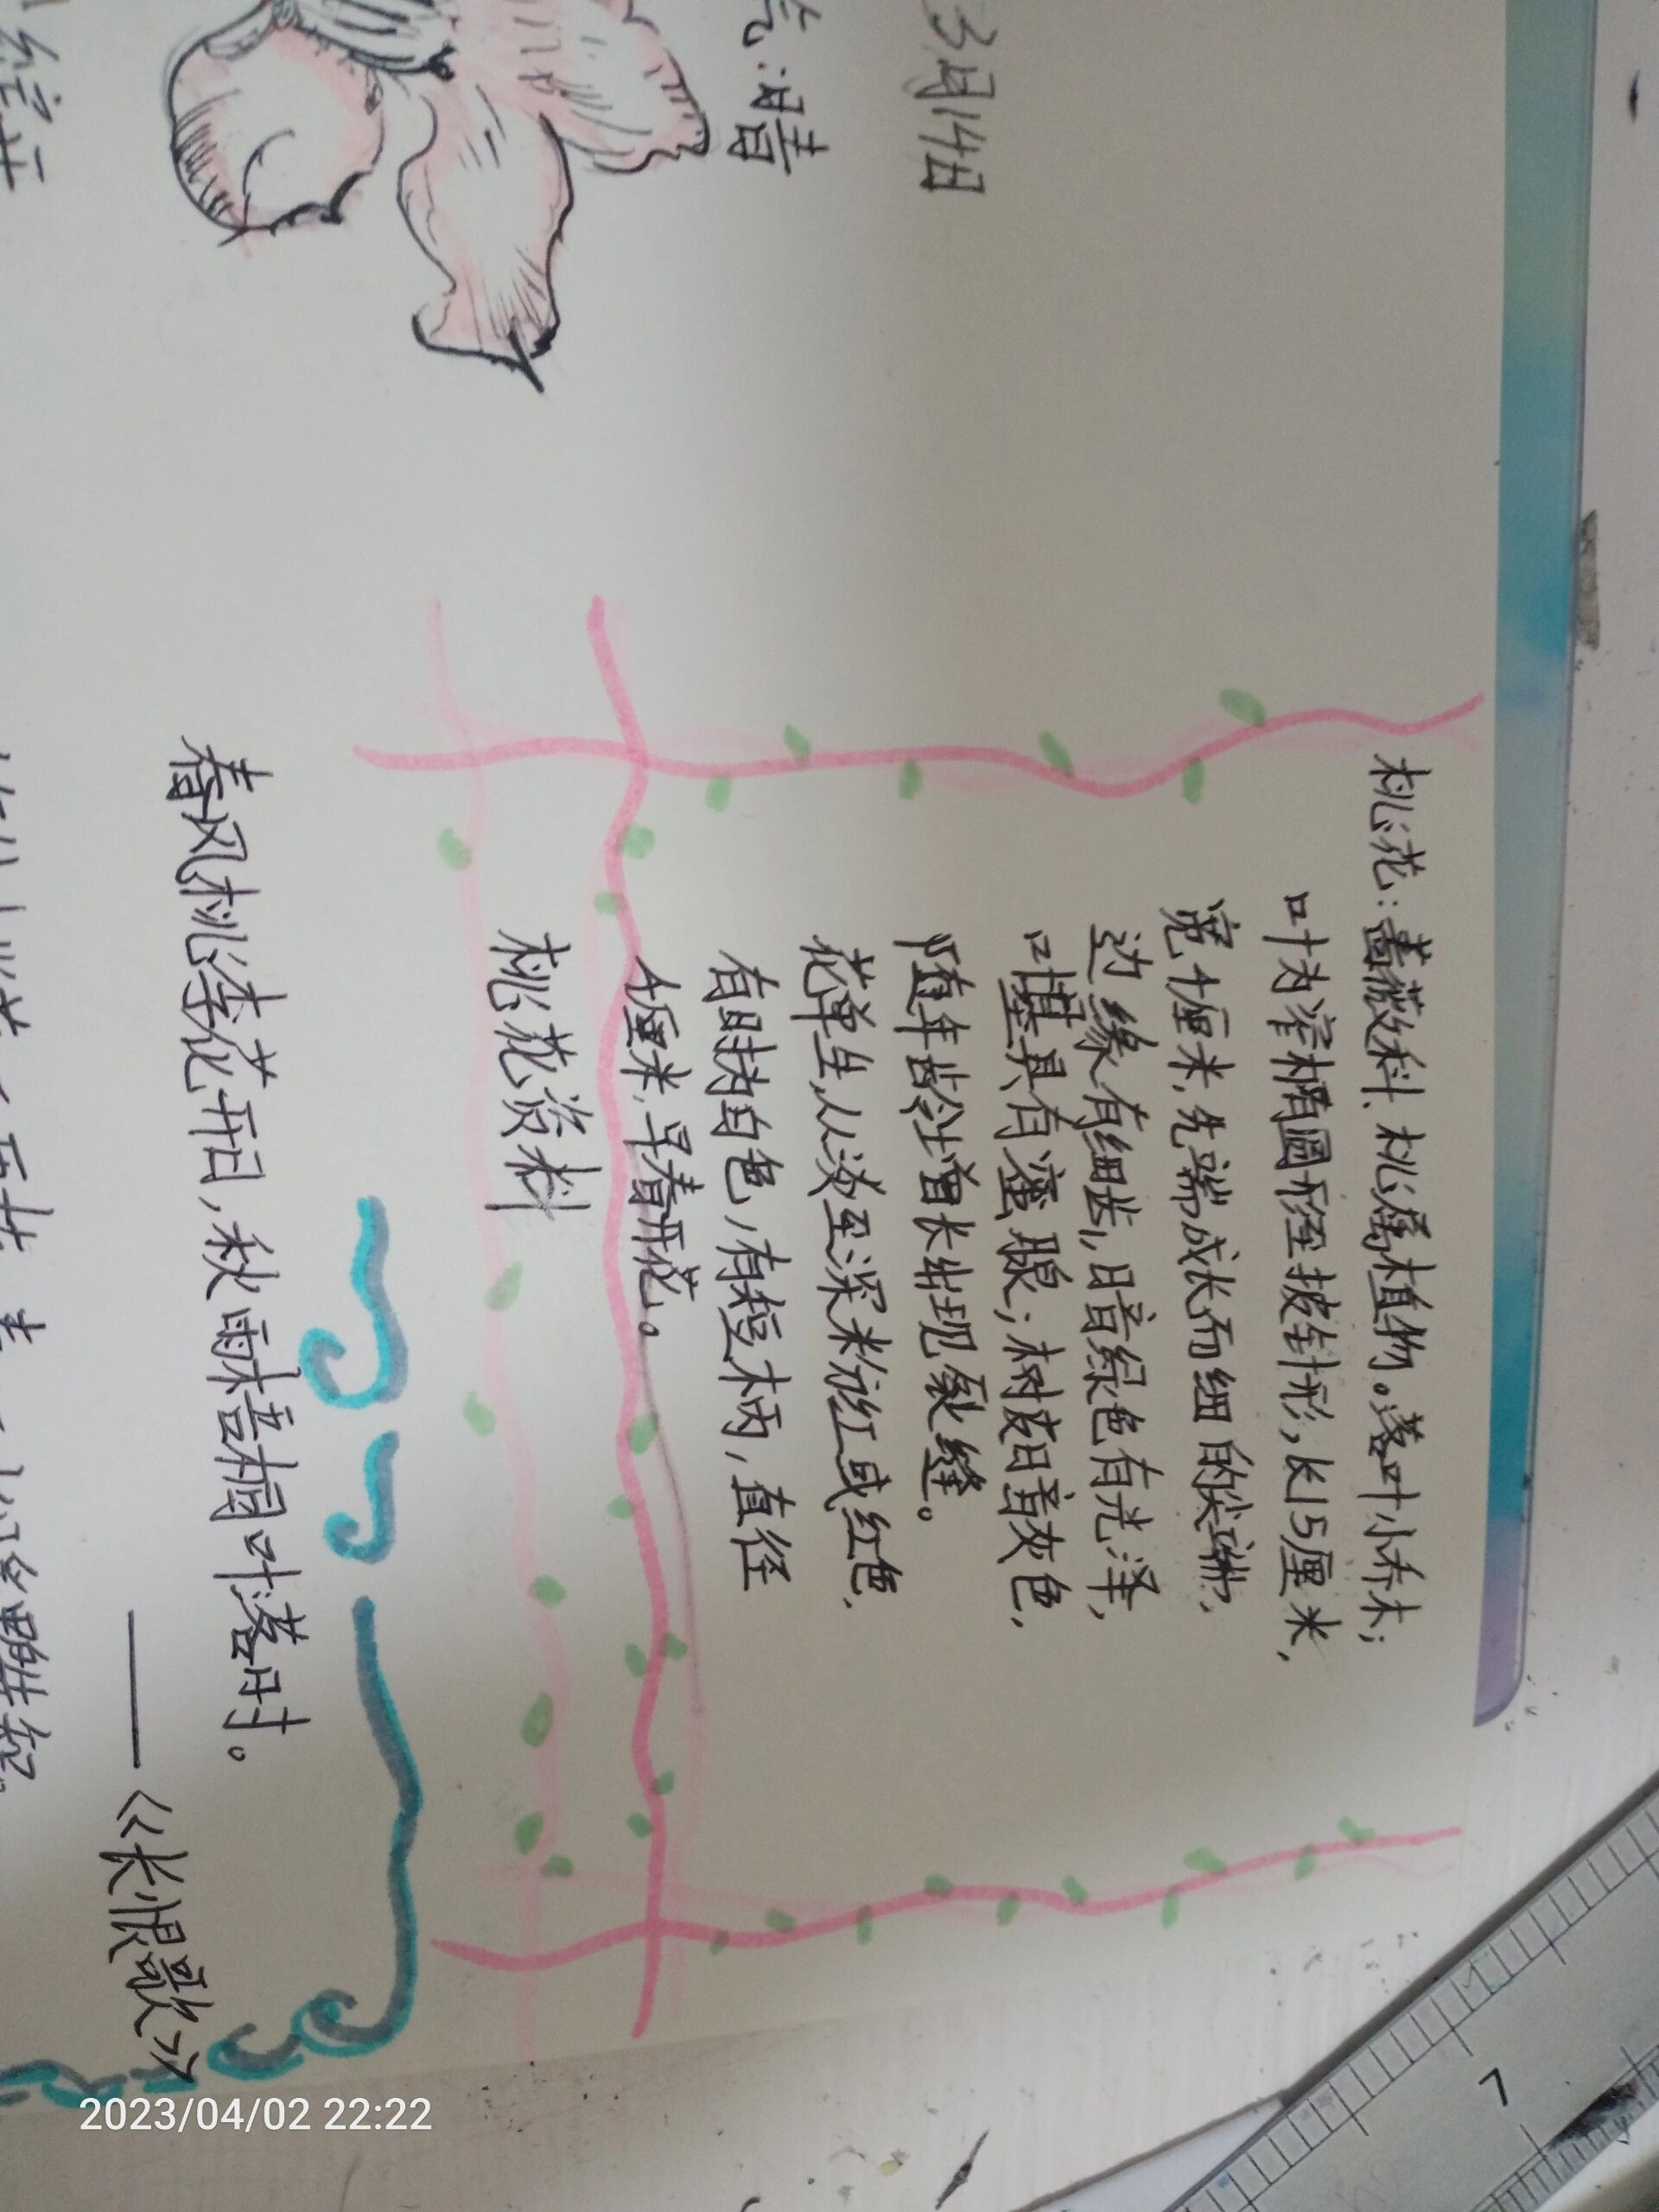 3月14日
气:晴
桃花:蔷薇科、桃属植物。落叶小乔木;
叶为窄椭圆形至披针形,长15厘米,
宽4厘米,先端成长而细的尖端,
边缘有细齿,暗绿色有光泽,
叶基具有蜜腺;树皮暗灰色,
随年龄增长出现裂缝。
花单生,从淡至深粉红或红色,
有时为白色,有短柄,直径
4厘米,早春开花。
桃花资料
春风桃李花开日,秋雨梧桐叶落时。
——《长恨歌》
7
2023/04/02 22:22